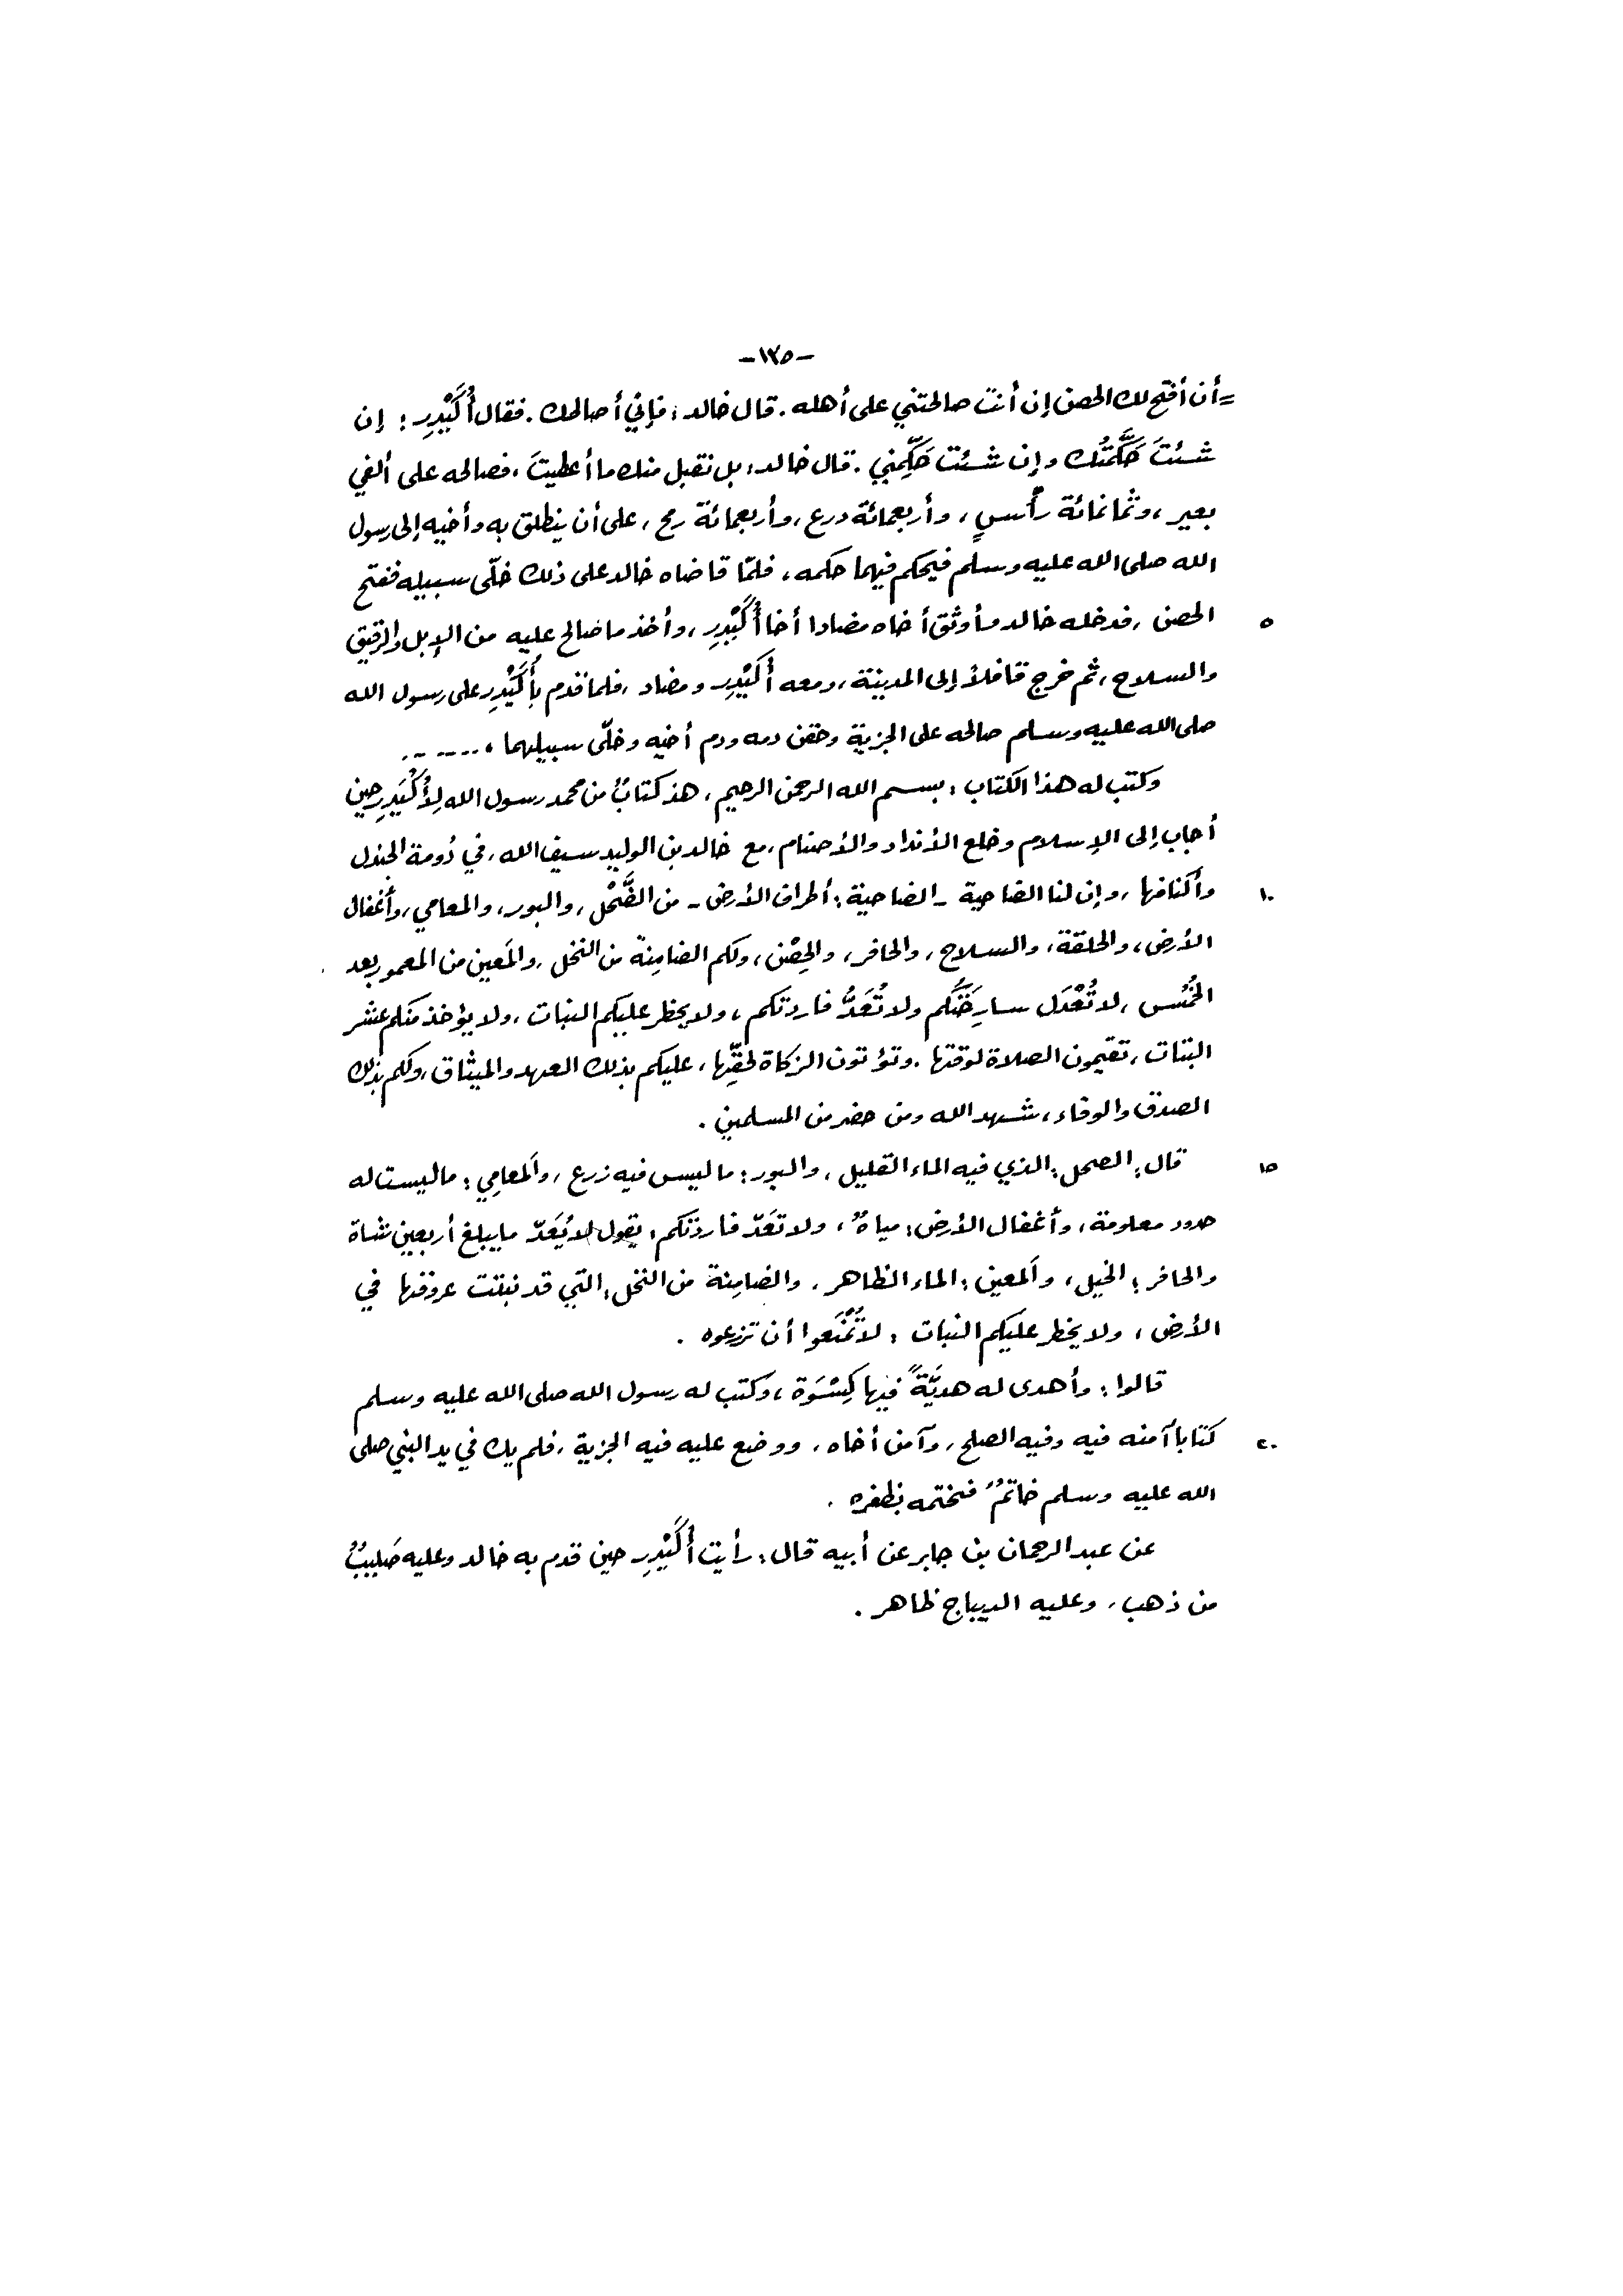 -١٢٥-
=أن أفتح لك الحصن إن أنتَ صالحتني على أهله. قال خالد: فإنّي أصالحك. فقال أُكَيْدِرِ: إن
شئتَ حَكَّمتُك وإن شئت حَكِّمني. قال خالد: بل نقبل منك ما أعطيتَ، فصالحه على ألفي
بعير، وثمانمائة رأسٍ، وأربعمائة درع، وأربعمائة رمح، على أن ينطلق به وأخيه إلى رسول
الله صلى الله عليه وسلم فيحكم فيهما حكمه، فلمّا قاضاه خالد على ذلك خلّى سبيله ففتح
٥ الحصن، فدخله خالد وأوثق أخاه مضادا أخا أُكَيْدِرِ، وأخذ ما صالح عليه من الإبل والرقيق
والسلاح، ثم خرج قافلاً إلى المدينة، ومعه أُكَيْدِرِ ومضاد، فلما قدم بأُكَيْدِرِ على رسول الله
صلى الله عليه وسلم صالحه على الجزية وحقن دمه ودم أخيه وخلّى سبيلهما، .......
وكتب له هذا الكتاب: بسم الله الرحمن الرحيم، هذ كتابٌ من محمد رسول الله لِأُكَيْدِرِ حين
أجاب إلى الإسلام وخلع الأنداد والأصنام، مع خالد بن الوليد سيف الله، في دُومة الجندل
١٠ وأكنافها، وإن لنا الضاحية - الضاحية: أطراف الأرض - من الضَّحْل، والبور، والمعامي، وأغفال
الأرض، والحلقة، والسلاح، والحافر، والحِصْن، ولكم الضامِنة من النخل، والمَعين من المعمور بعد
الخُمُس، لا تُعْدَل سارِحَتُكم ولا تُعَدُّ فاردتكم، ولا يحظر عليكم النبات، ولا يؤخذ منكم عشر
البتات، تقيمون الصلاة لوقتها. وتؤتون الزكاة لحَقِّها، عليكم بذلك العهد والميثاق، ولكم بذلك
الصدق والوفاء، شهد الله ومن حضر من المسلمين.
١٥ قال: الضحل: الذي فيه الماء القليل، والبور: ما ليس فيه زرع، والمَعامِي: ما ليست له
حدود معلومة، وأغفال الأرض: مياهٌ، ولا تعَدّ فاردتكم: يقول لا يُعَدّ ما يبلغ أربعين شاة
والحافر: الخيل، والمَعين: الماء الظاهر، والضامِنة من النخل: التي قد نبتت عروقها في
الأرض، ولا يحظر عليكم النبات: لا تُمْنَعوا أن تزرعوه.
قالوا: وأهدى له هديَّةً فيها كِسْوَة، وكتب له رسول الله صلى الله عليه وسلم
٢٠ كتاباً آمنه فيه وفيه الصلح، وآمن أخاه، ووضع عليه فيه الجزية، فلم يك في يد النبي صلى
الله عليه وسلم خاتَمٌ فختمه بظفره.
عن عبد الرحمان بن جابر عن أبيه قال: رأيت أُكَيْدِرِ حين قدم به خالد وعليه صَليبٌ
من ذهب، وعليه الديباج ظاهر.